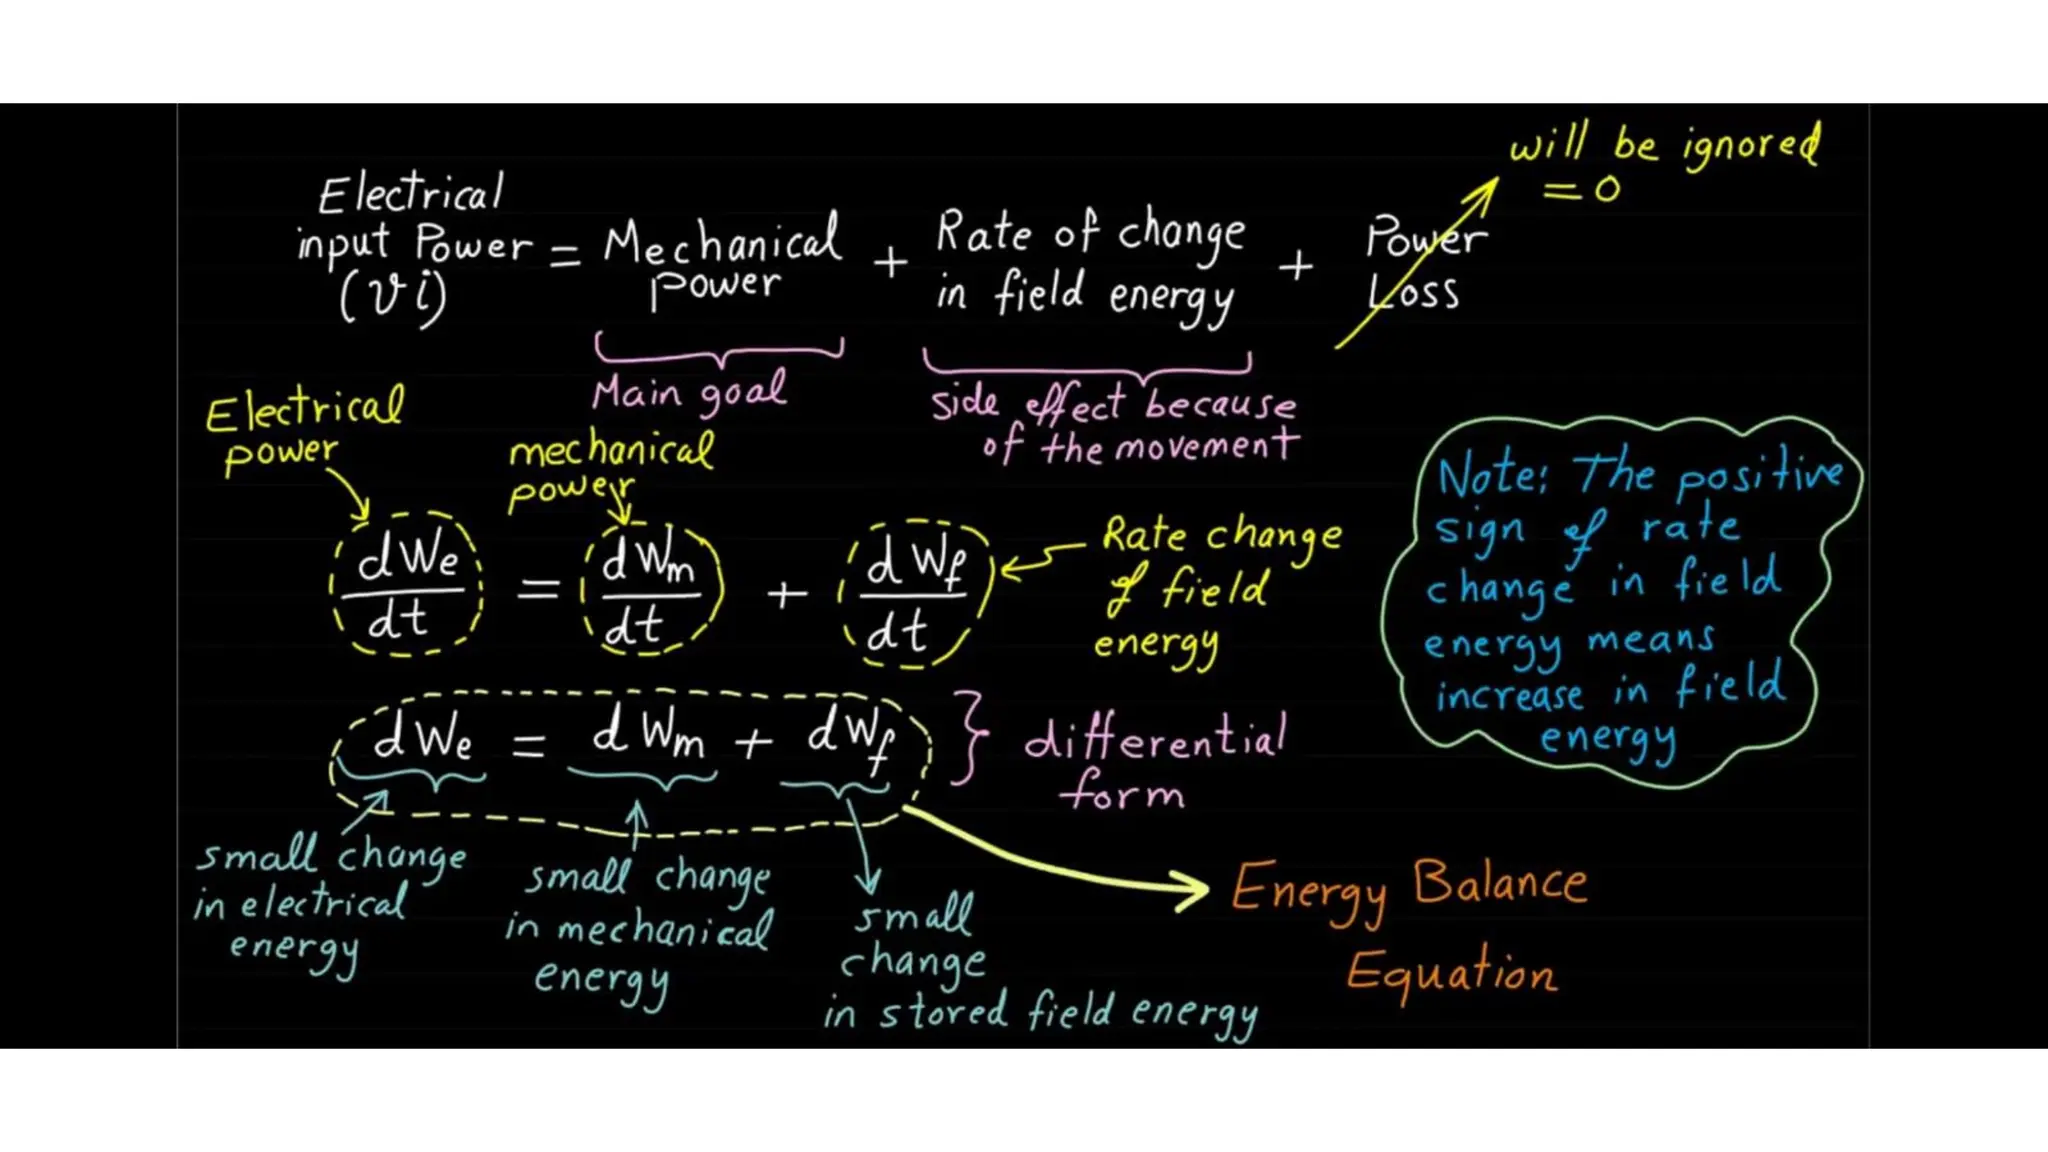 will be ignored
= 0
Electrical
input Power = Mechanical + Rate of change + Power
(vi) power in field energy Loss
Main goal
side effect because
of the movement
Electrical
power
mechanical
power
dWe/dt = dWm/dt + dWf/dt
Rate change
of field
energy
Note: The positive
sign of rate
change in field
energy means
increase in field
energy
dWe = dWm + dWf } differential
form
small change
in electrical
energy
small change
in mechanical
energy
small
change
in stored field energy
Energy Balance
Equation